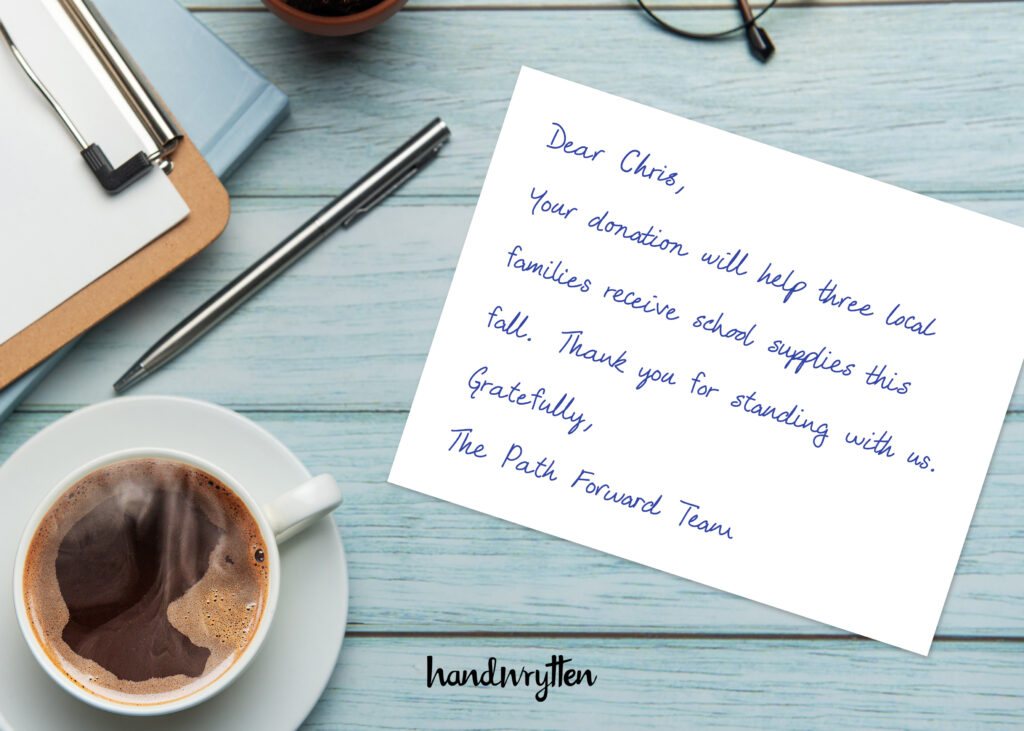 Dear Chris,
Your donation will help three local
families receive school supplies this
fall. Thank you for standing with us.
Gratefully,
The Path Forward Team
handwrytten